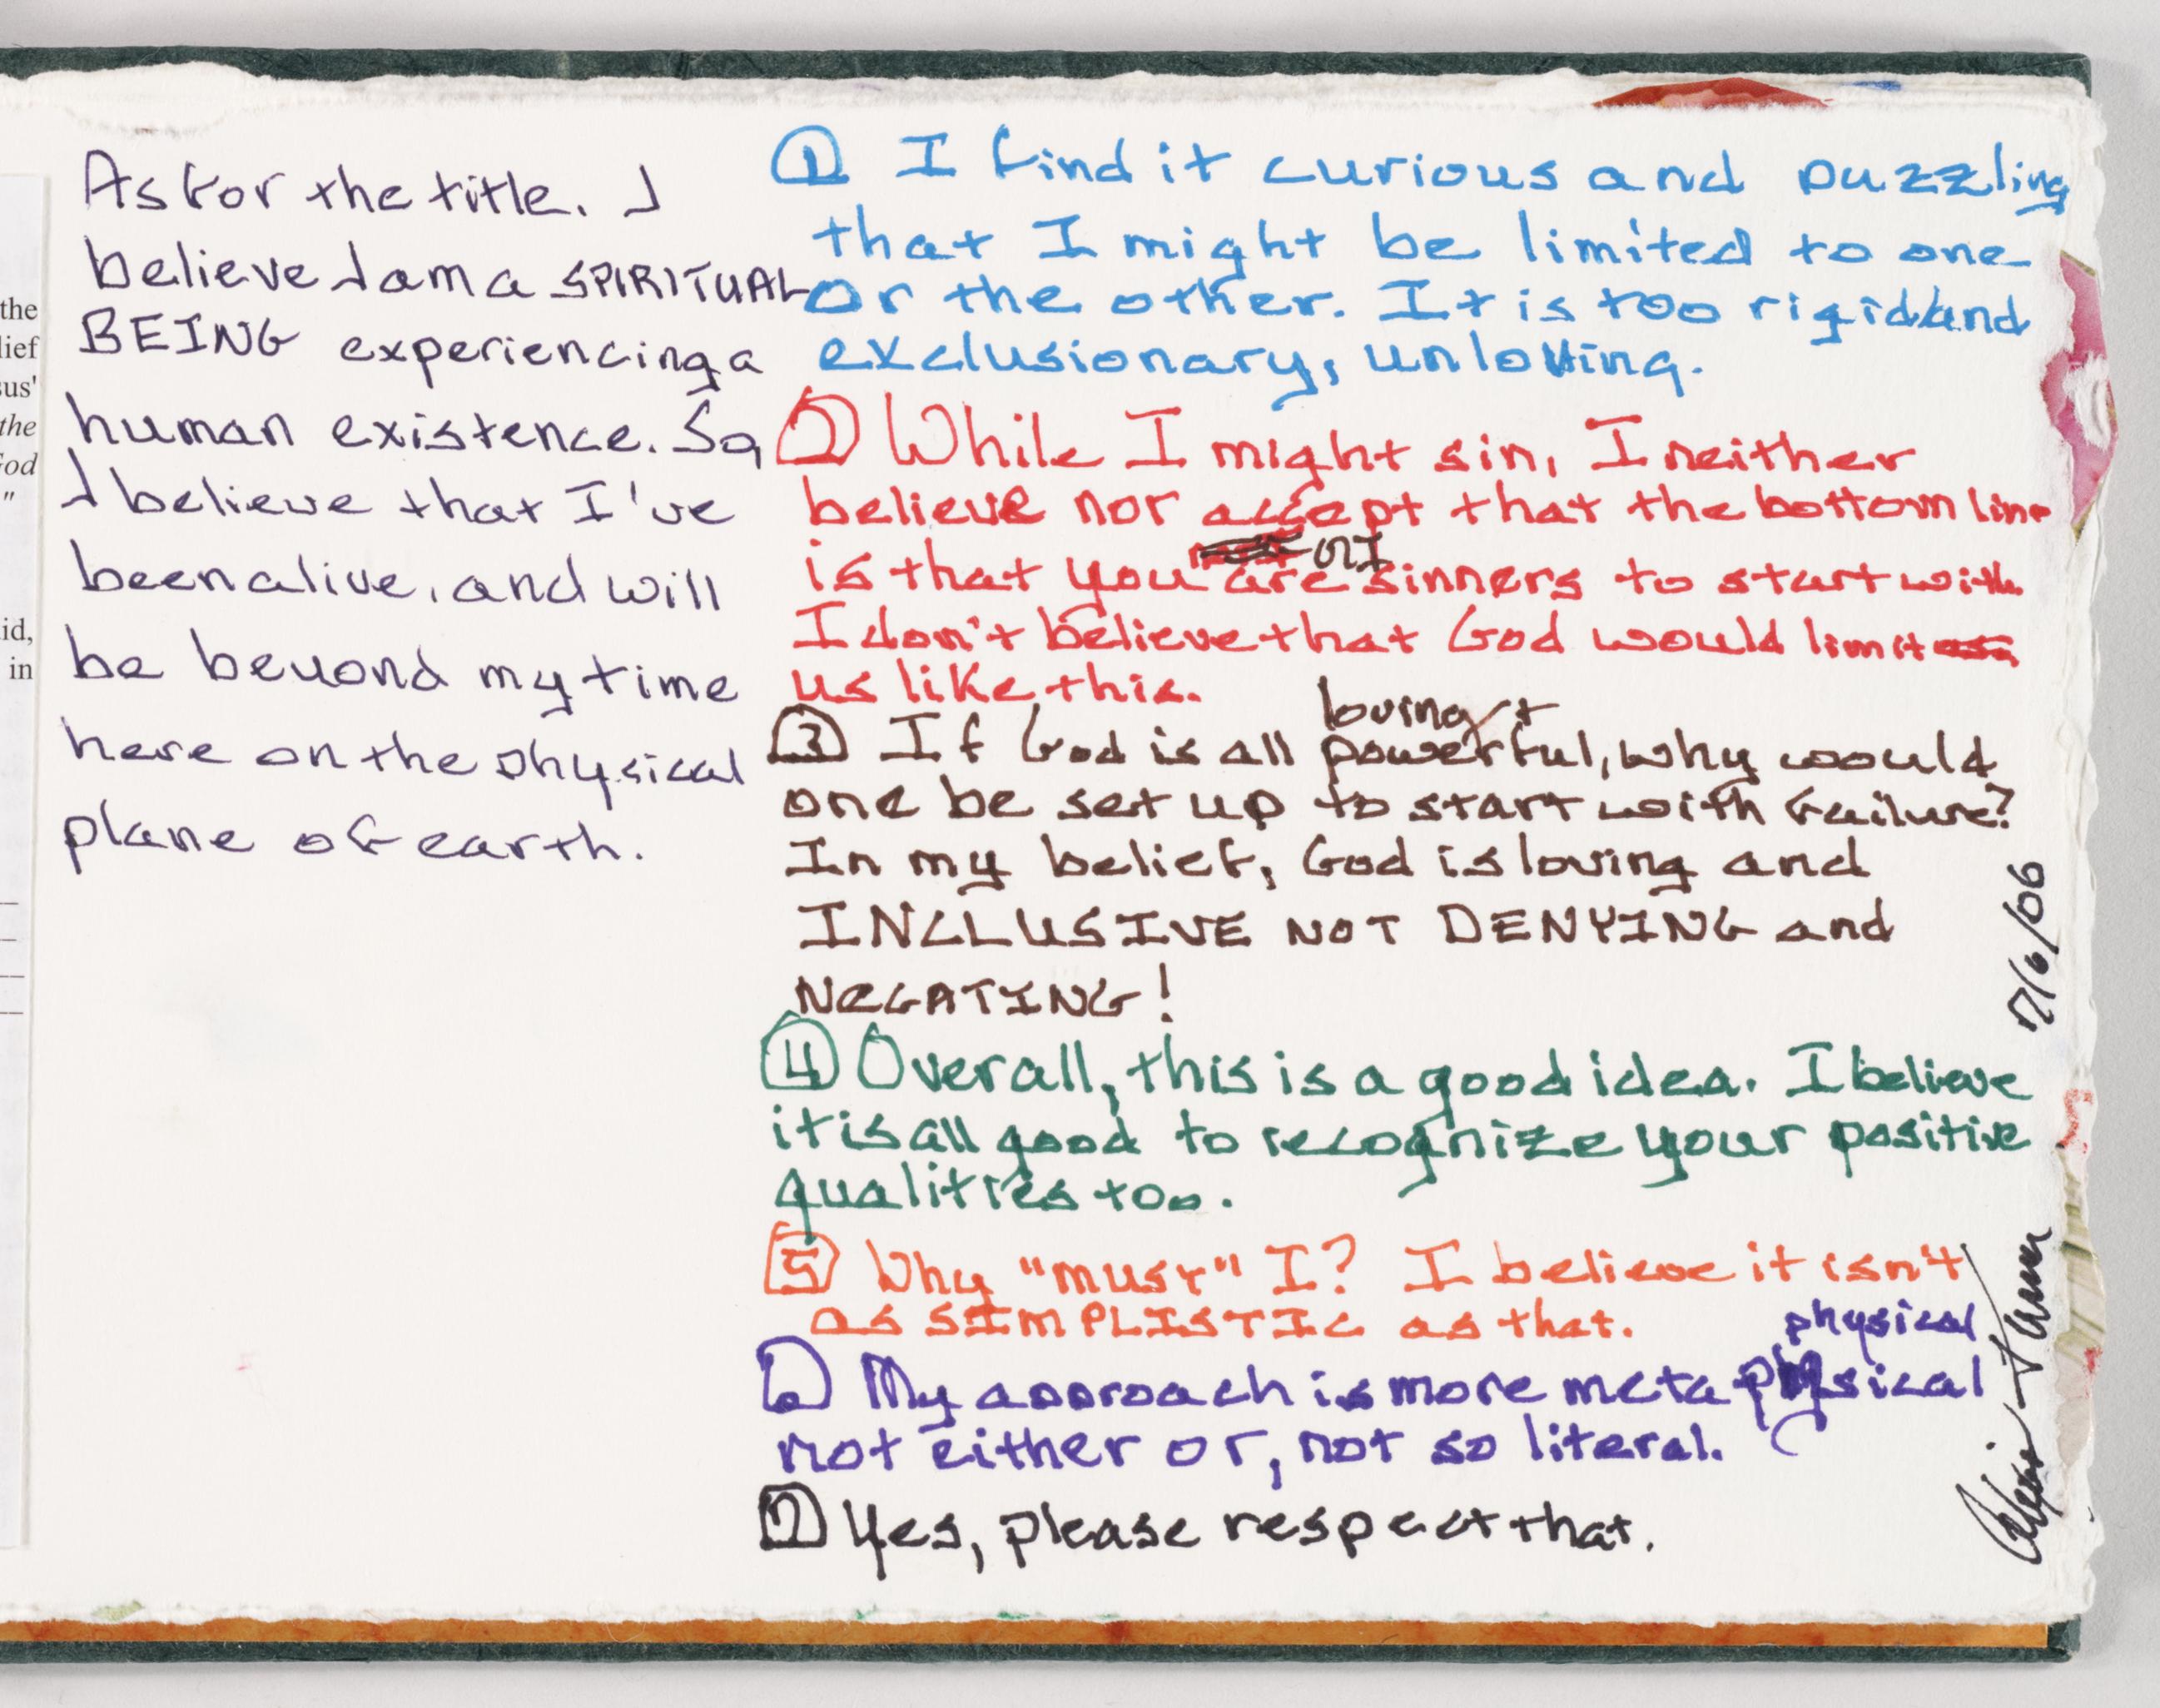 the
lief
sus'
the
God
"
id,
in
As for the title. I
believe I am a SPIRITUAL
BEING experiencing a
human existence. So,
I believe that I've
been alive, and will
be beyond my time
here on the physical
plane of earth.
1 I find it curious and puzzling
that I might be limited to one
or the other. It is too rigid/and
exclusionary, unloving.
2 While I might sin, I neither
believe nor accept that the bottom line
is that you are sinners to start with
I don't believe that God would limit
us like this.
loving/+
3 If God is all powerful, why would
one be set up to start with failure?
In my belief, God is loving and
INCLUSIVE NOT DENYING and
NEGATING!
4 Overall, this is a good idea. I believe
it is all good to recognize your positive
qualities too.
5 Why "must" I? I believe it isn't
as SIMPLISTIC as that.
physical
6 My approach is more metaphysical
not either or, not so literal.
7 Yes, please respect that.
7/6/06